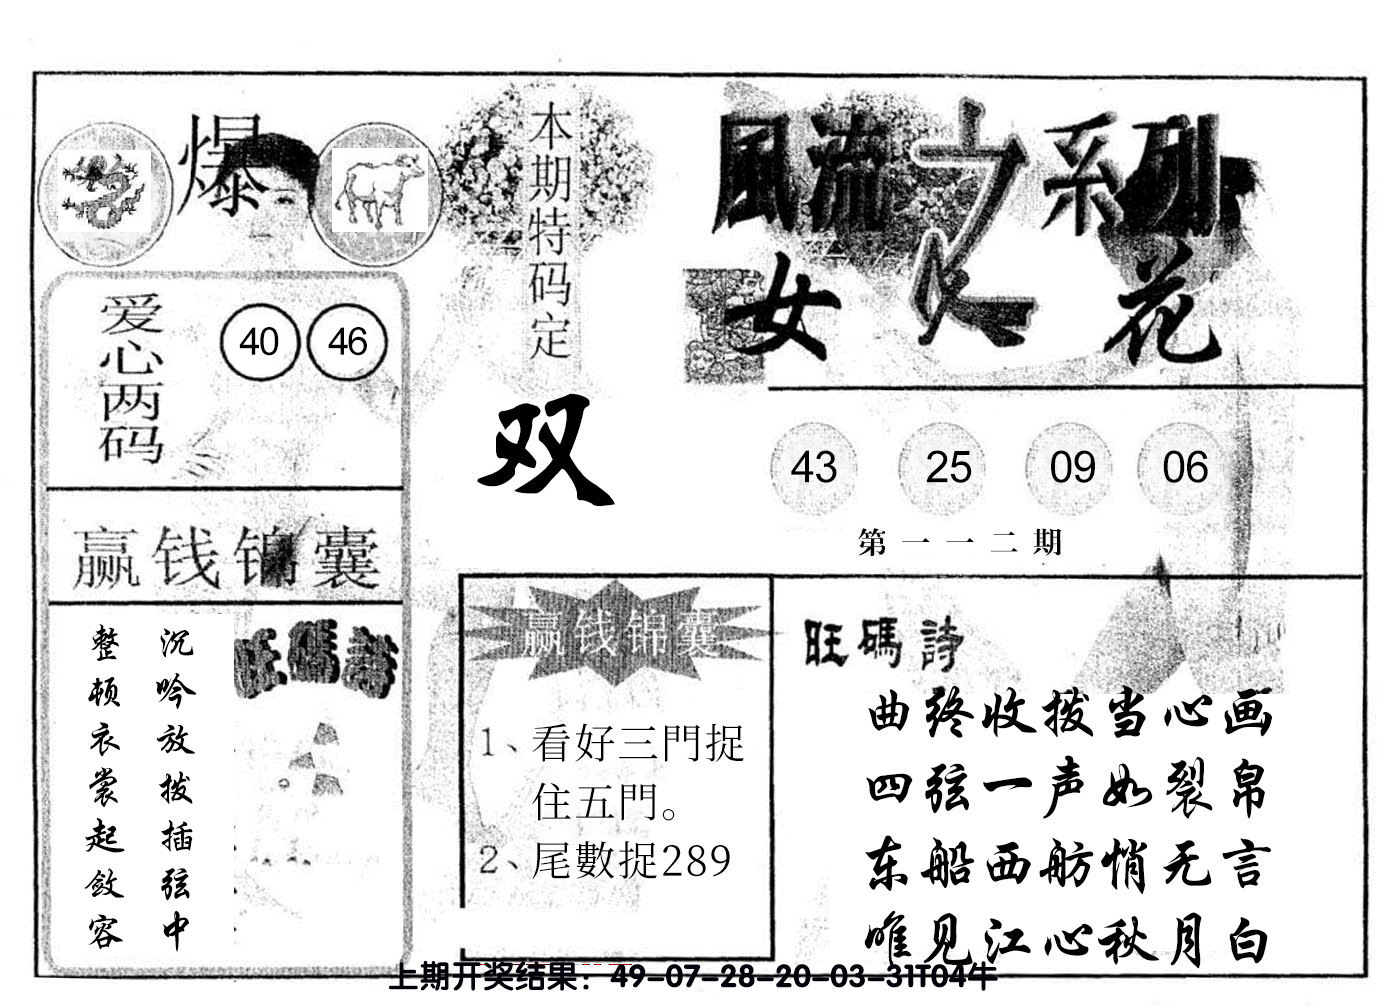 爆
本期特码定
双
爱心两码
40 46
赢钱锦囊
沉吟放拨插弦中
整顿衣裳起敛容
旺碼詩
風流之系列
女人花
43 25 09 06
第一一二期
赢钱锦囊
1、看好三門捉
住五門。
2、尾數捉289
旺碼詩
曲终收拨当心画
四弦一声如裂帛
东船西舫悄无言
唯见江心秋月白
上期开奖结果：49-07-28-20-03-31T04牛